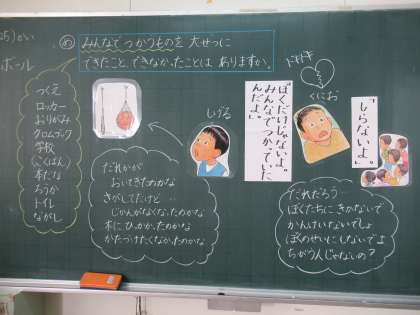 5)かい
ボール
め みんなで つかうものを 大せつに
できたこと、できなかったことは ありますか。
つくえ
ロッカー
おりがみ
クロムブック
学校
(こくばん)
本だな
ろうか
トイレ
ながし
だれかが
おいてきたのかな
さがしてたけど…
じかんがなくなったのかな
木にひっかかったのかな
かたづけたくなかったのかな
しげる
「ぼくだけじゃないよ。
みんなでつかっていた
んだよ。」
どきどき
くにお
「しらないよ。」
だれだろう…
ぼくたちに きかないで
かんけいないでしょ
ぼくのせいにしないでよ
ちがう人じゃないの?